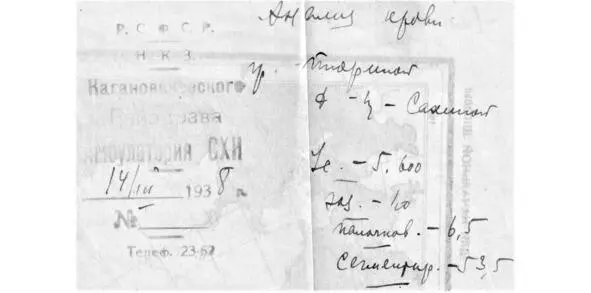 Р. С. Ф. С. Р.
Н. К. З.
Кагановического
Райздрава
Амбулатория СХИ
14/III 1938 г.
№
Телеф. 23-62
Анализ крови
гр.
Le. – 5.600
эоз. –
палочков. – 6,5
сегментир. – 53,5